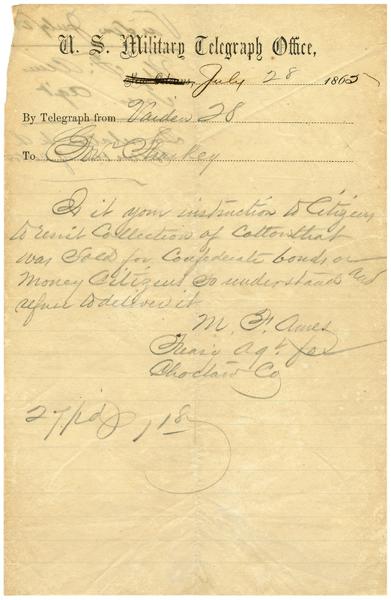 U. S. Military Telegraph Office,
New Orleans, July 28 1865
By Telegraph from Vaiden 28
To Gov Sharkey
Is it your instruction to Citizens
to resist Collection of Cotton that
was Sold for Confederate bonds or
Money Citizens so understand and
refuse to deliver it
M. F. Ames
Treas Agt for
Choctaw Co
27 pd 1 18